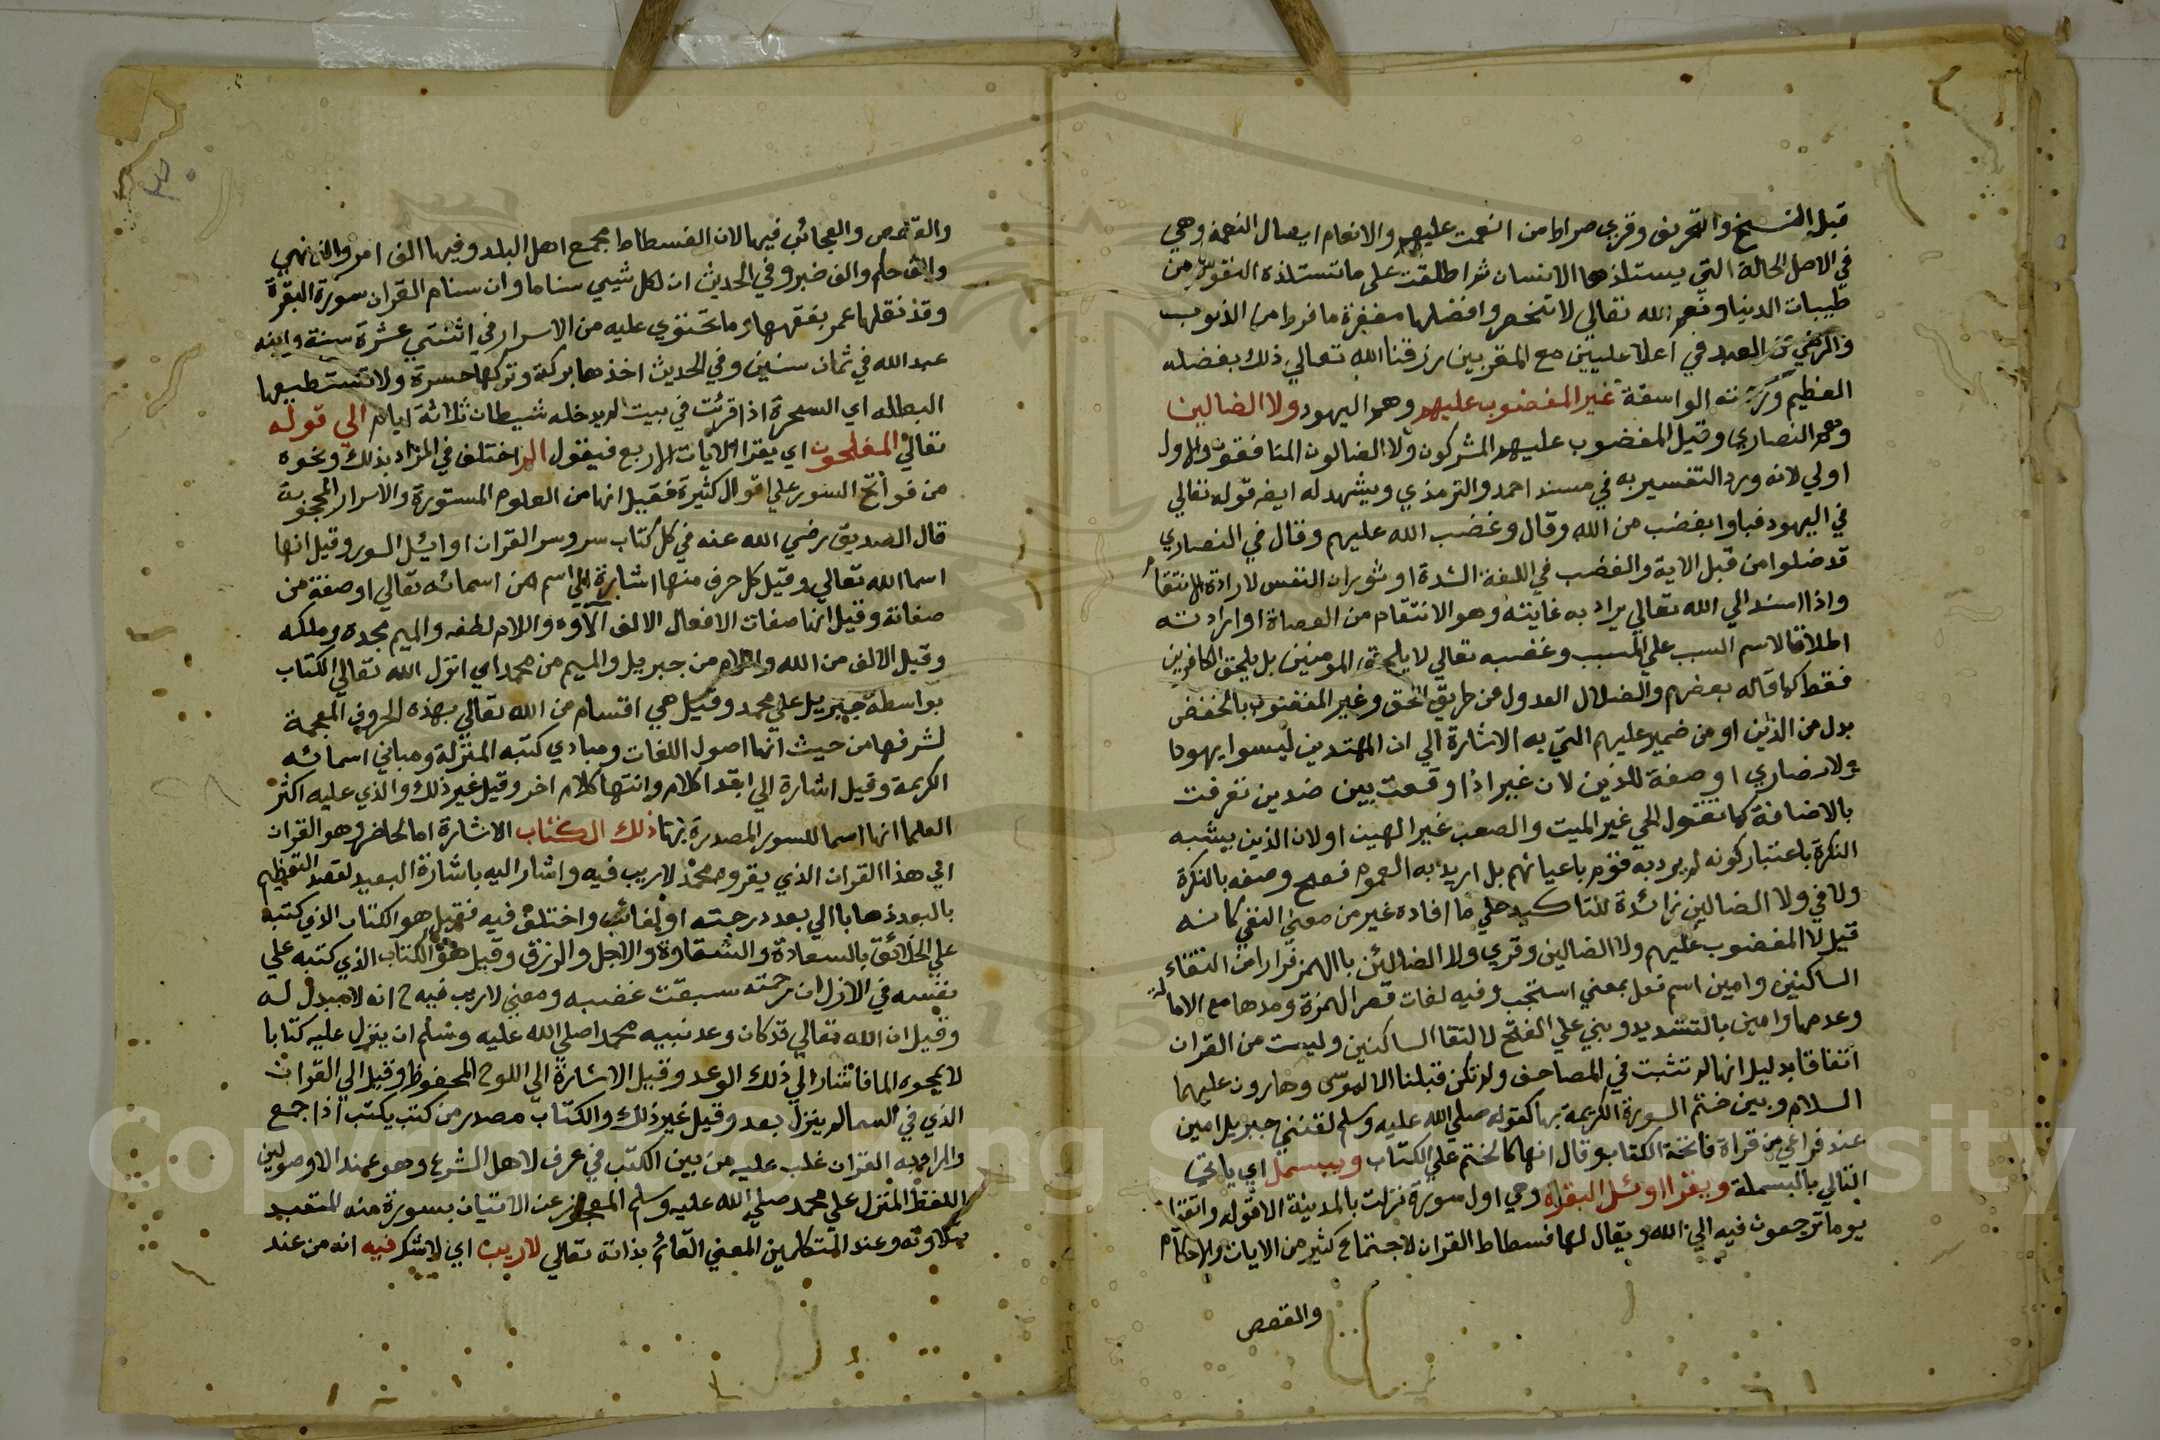 قبل النسخ والتحريف وقري صراط من انعمت عليهم والانعام ايصال النعمة وهي
في الاصل الحالة التي يستلذها الانسان ثم اطلقت على ما تستلذه النفوس من
طيبات الدنيا ونعم الله تعالي لا تنحصر وافضلها مغفرة ما فرط من الذنوب
والرضي عن العبد في اعلا عليين مع المقربين رزقنا الله تعالي ذلك بفضله
العظيم وكرمه الواسعة غير المغضوب عليهم وهم اليهود ولا الضالين
وهم النصاري وقيل المغضوب عليهم المشركون ولا الضالون المنافقون والاول
اولي لانه ورد التفسير به في مسند احمد والترمذي ويشهد له ايضا قوله تعالي
في اليهود فباوا بغضب من الله وقال وغضب الله عليهم وقال في النصاري
قد ضلوا من قبل الاية والغضب في اللغة الشدة او ثوران النفس لارادة الانتقام
واذا اسند الي الله تعالي يراد به غايته وهو الانتقام من العصاة او ارادته
اطلاقا لاسم السبب علي المسبب وغضبه تعالي لا يلحق المومنين بل يلحق الكافرين
فقط كما قاله بعضهم والضلال العدول عن طريق الحق وغير المغضوب بالخفض
بدل من الذين او من ضمير عليهم التي به الاشارة الي ان المهتدين ليسوا يهودا
ولا نصاري او صفة للذين لان غير اذا وقعت بين ضدين تعرفت
بالاضافة كما تقول الحي غير الميت والصعب غير الهين او لان الذين يشبه
النكرة باعتبار كونه لم يرد به قوم باعيانهم بل اريد به العموم فصح وصفه بالنكرة
ولا في ولا الضالين زائدة للتاكيد علي ما افاده غير من معني النفي كانه
قيل لا المغضوب عليهم ولا الضالين وقري ولا الضالئن بالهمز فرارا من التقاء
الساكنين وامين اسم فعل بمعني استجب وفيه لغات قصر الهمزة ومدها مع الامالة
وعدمها وامين بالتشديد وبني علي الفتح لالتقا الساكنين وليست من القران
اتفاقا بدليل انها لم تثبت في المصاحف ولم تكن قبلنا الا لموسى وهارون عليهما
السلام وبين ختم السورة الكريمة بها كقوله صلي الله عليه وسلم لقنني جبريل امين
عند فراغي من قراة فاتحة الكتاب وقال انها كالختم علي الكتاب ويبسمل اي ياتي
التالي بالبسملة ويقرا اوئل البقرة وهي اول سورة نزلت بالمدينة الا قوله واتقوا
يوما ترجعون فيه الي الله ويقال لها فسطاط القران لاجتماع كثير من الايات والاحكام
والقصص
والقصص والعجائب فيها لان الفسطاط مجمع اهل البلد وفيها الف امر والف نهي
والف حكم والف خبر وفي الحديث ان لكل شيي سناما وان سنام القران سورة البقرة
وقد نقلها عمر بفقهها وما تحتوي عليه من الاسرار في اثنتي عشرة سنة وابنه
عبد الله في ثمان سنين وفي الحديث اخذها بركة وتركها حسرة ولا تستطيعها
البطلة اي السحرة اذا قرئت في بيت لم يدخله شيطان ثلاثة ايام الي قوله
تعالي المفلحون اي يقرا الايات الاربع فيقول الم اختلف في المراد بذلك ونحوه
من فواتح السور علي اقوال كثيرة فقيل انها من العلوم المستورة والاسرار المحجوبة
قال الصديق رضي الله عنه في كل كتاب سر وسر القران اوائل السور وقيل انها
اسما الله تعالي وقيل كل حرف منها اشارة الي اسم من اسمائه تعالي او صفة من
صفاته وقيل انها صفات الافعال الالف آلاوه واللام لطفه والميم مجده وملكه
وقيل الالف من الله واللام من جبريل والميم من محمد اي انزل الله تعالي الكتاب
بواسطة جبريل علي محمد وقيل هي اقسام من الله تعالي بهذه الحروف المعجمة
لشرفها من حيث انها اصول اللغات ومبادي كتبه المنزلة ومباني اسمائه
الكريمة وقيل اشارة الي ابتدا كلام وانتها كلام اخر وقيل غير ذلك والذي عليه اكثر
العلما انها اسما للسور المصدرة بها ذلك الكتاب الاشارة اما لحاضر وهو القران
اي هذا القران الذي يقروه محمد لا ريب فيه واشار اليه باشارة البعيد لقصد التعظيم
بالبعد ذهابا الي بعد درجته او لغائب واختلف فيه فقيل هو الكتاب الذي كتبه
علي الخلائق بالسعادة والشقاوة والاجل والرزق وقيل هو الكتاب الذي كتبه علي
نفسه في الازل ان رحمته سبقت غضبه ومعني لا ريب فيه ح انه لا مبدل له
وقيل ان الله تعالي قد كان وعد نبيه محمدا صلي الله عليه وسلم ان ينزل عليه كتابا
لا يمحوه الما فاشار الي ذلك الوعد وقيل الاشارة الي اللوح المحفوظ وقيل الي القران
الذي في السما لم ينزل بعد وقيل غير ذلك والكتاب مصدر من كتب يكتب اذا جمع
والمراد به القران غلب عليه من بين الكتب في عرف لاهل الشرع وهو عند الاوصولين
اللفظ المنزل علي محمد صلي الله عليه وسلم المعجز عن الاتيان بسورة منه المتعبد
بتلاوته وعند المتكلمين المعني القائم بذاته تعالي لا ريب اي لا شك فيه انه من عند